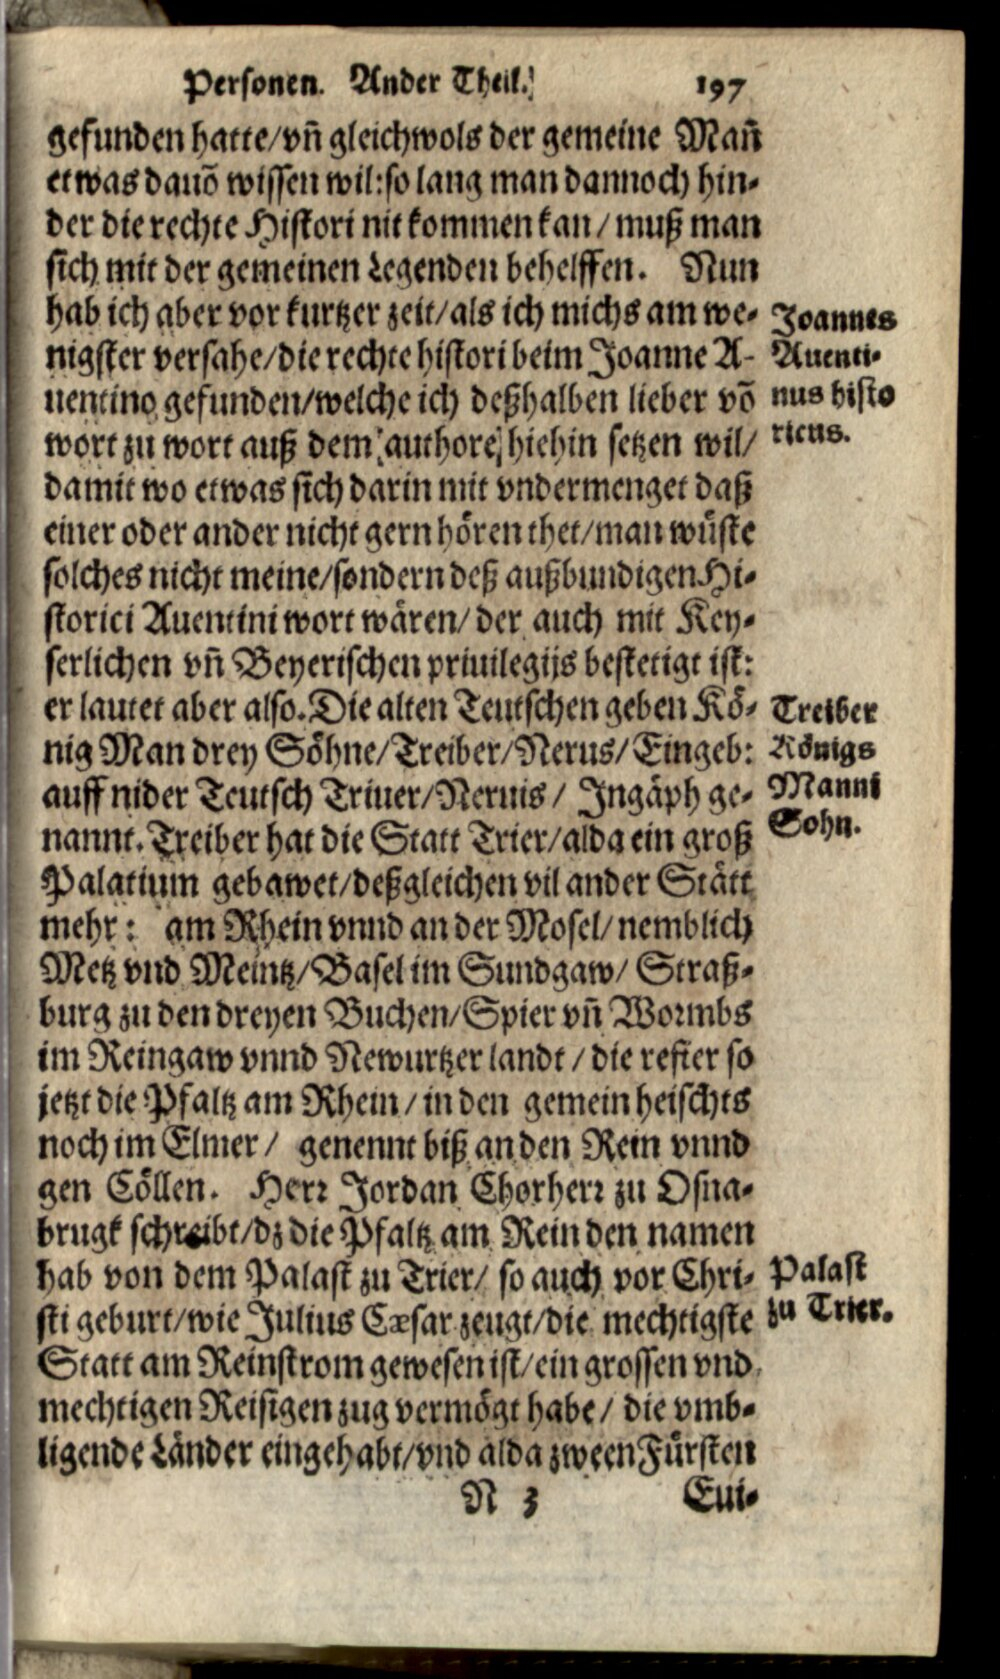 Personen. Ander Theil. 197
gefunden hatte/vñ gleichwols der gemeine Mañ
etwas dauõ wissen wil:so lang man dannoch hin-
der die rechte Histori nit kommen kan/ muß man
sich mit der gemeinen Legenden behelffen. Nun
hab ich aber vor kurtzer zeit/als ich michs am we-
nigster versahe/die rechte histori beim Joanne A-
uentino gefunden/welche ich deßhalben lieber võ
wort zu wort auß dem authore hiehin setzen wil/
damit wo etwas sich darin mit vndermenget daß
einer oder ander nicht gern hören thet/man wüste
solches nicht meine/sondern deß außbundigen Hi-
storici Auentini wort wären/ der auch mit Key-
serlichen vñ Beyerischen priuilegijs bestetigt ist:
er lautet aber also. Die alten Teutschen geben Kö-
nig Man drey Söhne/Treiber/Nerus/Eingeb:
auff nider Teutsch Triuer/Neruis/ Ingäph ge-
nannt. Treiber hat die Statt Trier/alda ein groß
Palatium gebawet/deßgleichen vil ander Stätt
mehr: am Rhein vnnd an der Mosel/nemblich
Metz vnd Meintz/Basel im Sundgaw/ Straß-
burg zu den dreyen Buchen/Spier vñ Wormbs
im Reingaw vnnd Newurtzer landt/ die refier so
jetzt die Pfaltz am Rhein/ in den gemein heischts
noch im Elmer/ genennt biß an den Rein vnnd
gen Cöllen. Herr Jordan Chorherr zu Osna-
brugk schreibt/dz die Pfaltz am Rein den namen
hab von dem Palast zu Trier/ so auch vor Chri-
sti geburt/wie Julius Cæsar zeugt/die mechtigste
Statt am Reinstrom gewesen ist/ein grossen vnd
mechtigen Reisigen zug vermögt habe/ die vmb-
ligende Länder eingehabt/vnd alda zween Fürsten
N 3 Eui-
Joannes
Auenti-
nus histo
ricus.
Treiber
Königs
Manni
Sohn.
Palast
zu Trier.